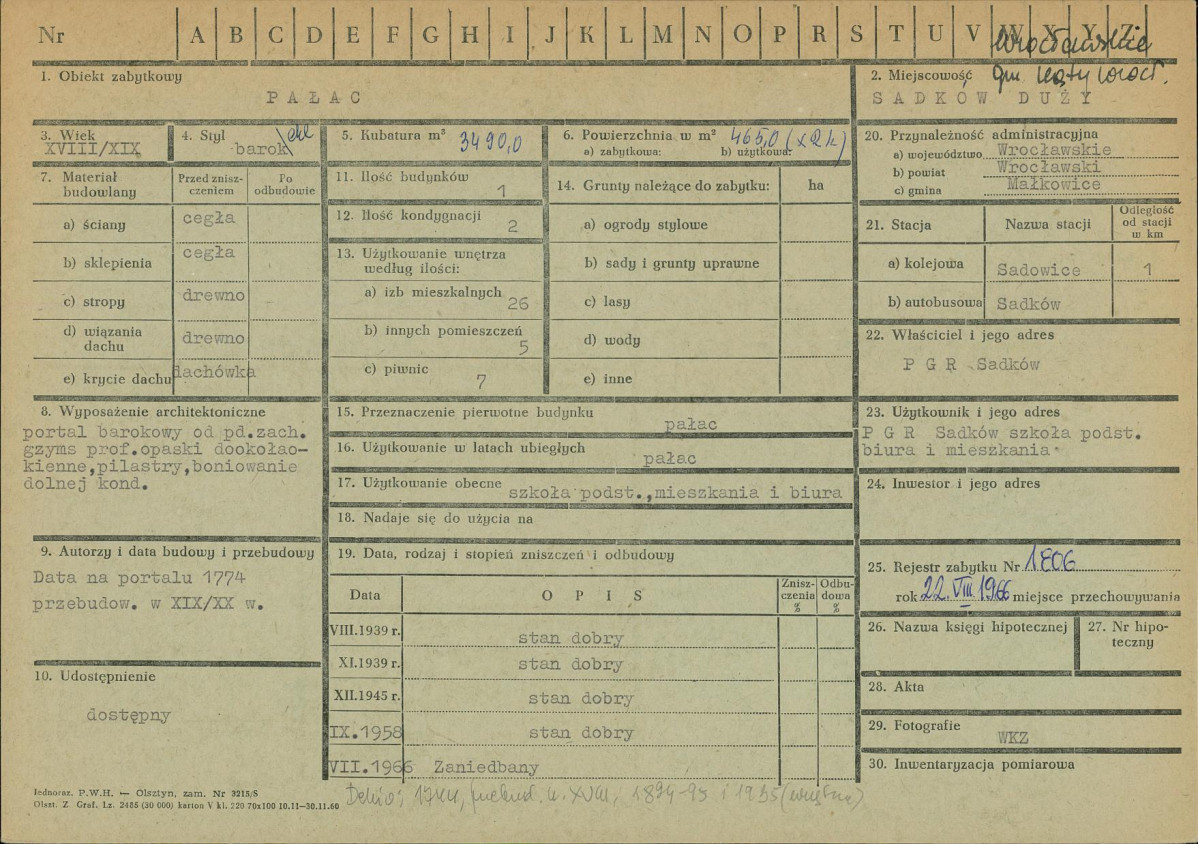 Nr A B C D E F G H I J K L M N O P R S T U V W X Y Z
Wrocławskie
gm. Kąty Wrocł.
1. Obiekt zabytkowy
PAŁAC
2. Miejscowość
SADKÓW DUŻY
3. Wiek
XVIII/XIX
4. Styl
barok
5. Kubatura m³ 3490,0
6. Powierzchnia w m² 465,0 (x2k)
a) zabytkowa: b) użytkowa:
20. Przynależność administracyjna
a) województwo Wrocławskie
b) powiat Wrocławski
c) gmina Małkowice
7. Materiał budowlany
Przed znisz-
czeniem
Po
odbudowie
a) ściany cegła
b) sklepienia cegła
c) stropy drewno
d) wiązania
dachu drewno
e) krycie dachu dachówka
11. Ilość budynków
1
12. Ilość kondygnacji
2
13. Użytkowanie wnętrza
według ilości:
a) izb mieszkalnych
26
b) innych pomieszczeń
5
c) piwnic
7
14. Grunty należące do zabytku: ha
a) ogrody stylowe
b) sady i grunty uprawne
c) lasy
d) wody
e) inne
21. Stacja Nazwa stacji
Odległość
od stacji
w km
a) kolejowa Sadowice 1
b) autobusowa Sadków
22. Właściciel i jego adres
P G R Sadków
8. Wyposażenie architektoniczne
portal barokowy od pd.zach.
gzyms prof.opaski dookoła o-
kienne,pilastry,boniowanie
dolnej kond.
15. Przeznaczenie pierwotne budynku
pałac
16. Użytkowanie w latach ubiegłych
pałac
17. Użytkowanie obecne szkoła podst.,mieszkania i biura
18. Nadaje się do użycia na
23. Użytkownik i jego adres
P G R Sadków szkoła podst.
biura i mieszkania
24. Inwestor i jego adres
9. Autorzy i data budowy i przebudowy
Data na portalu 1774
przebudow. w XIX/XX w.
10. Udostępnienie
dostępny
19. Data, rodzaj i stopień zniszczeń i odbudowy
Data OPIS
Znisz-
czenia
%
Odbu-
dowa
%
VIII.1939 r. stan dobry
XI.1939 r. stan dobry
XII.1945 r. stan dobry
IX.1958 stan dobry
VII.1966 Zaniedbany
25. Rejestr zabytku Nr 1806
rok 22.VIII.1966 miejsce przechowywania
26. Nazwa księgi hipotecznej
27. Nr hipo-
teczny
28. Akta
29. Fotografie
WKZ
30. Inwentaryzacja pomiarowa
Jednoraz. P.W.H. — Olsztyn, zam. Nr 3215/S
Olszt. Z. Graf. Lz. 2485 (30 000) karton V kl. 220 70x100 10.11—30.11.60
Dehio: 1744, przebud. k. XVIII, 1894-95 i 1935